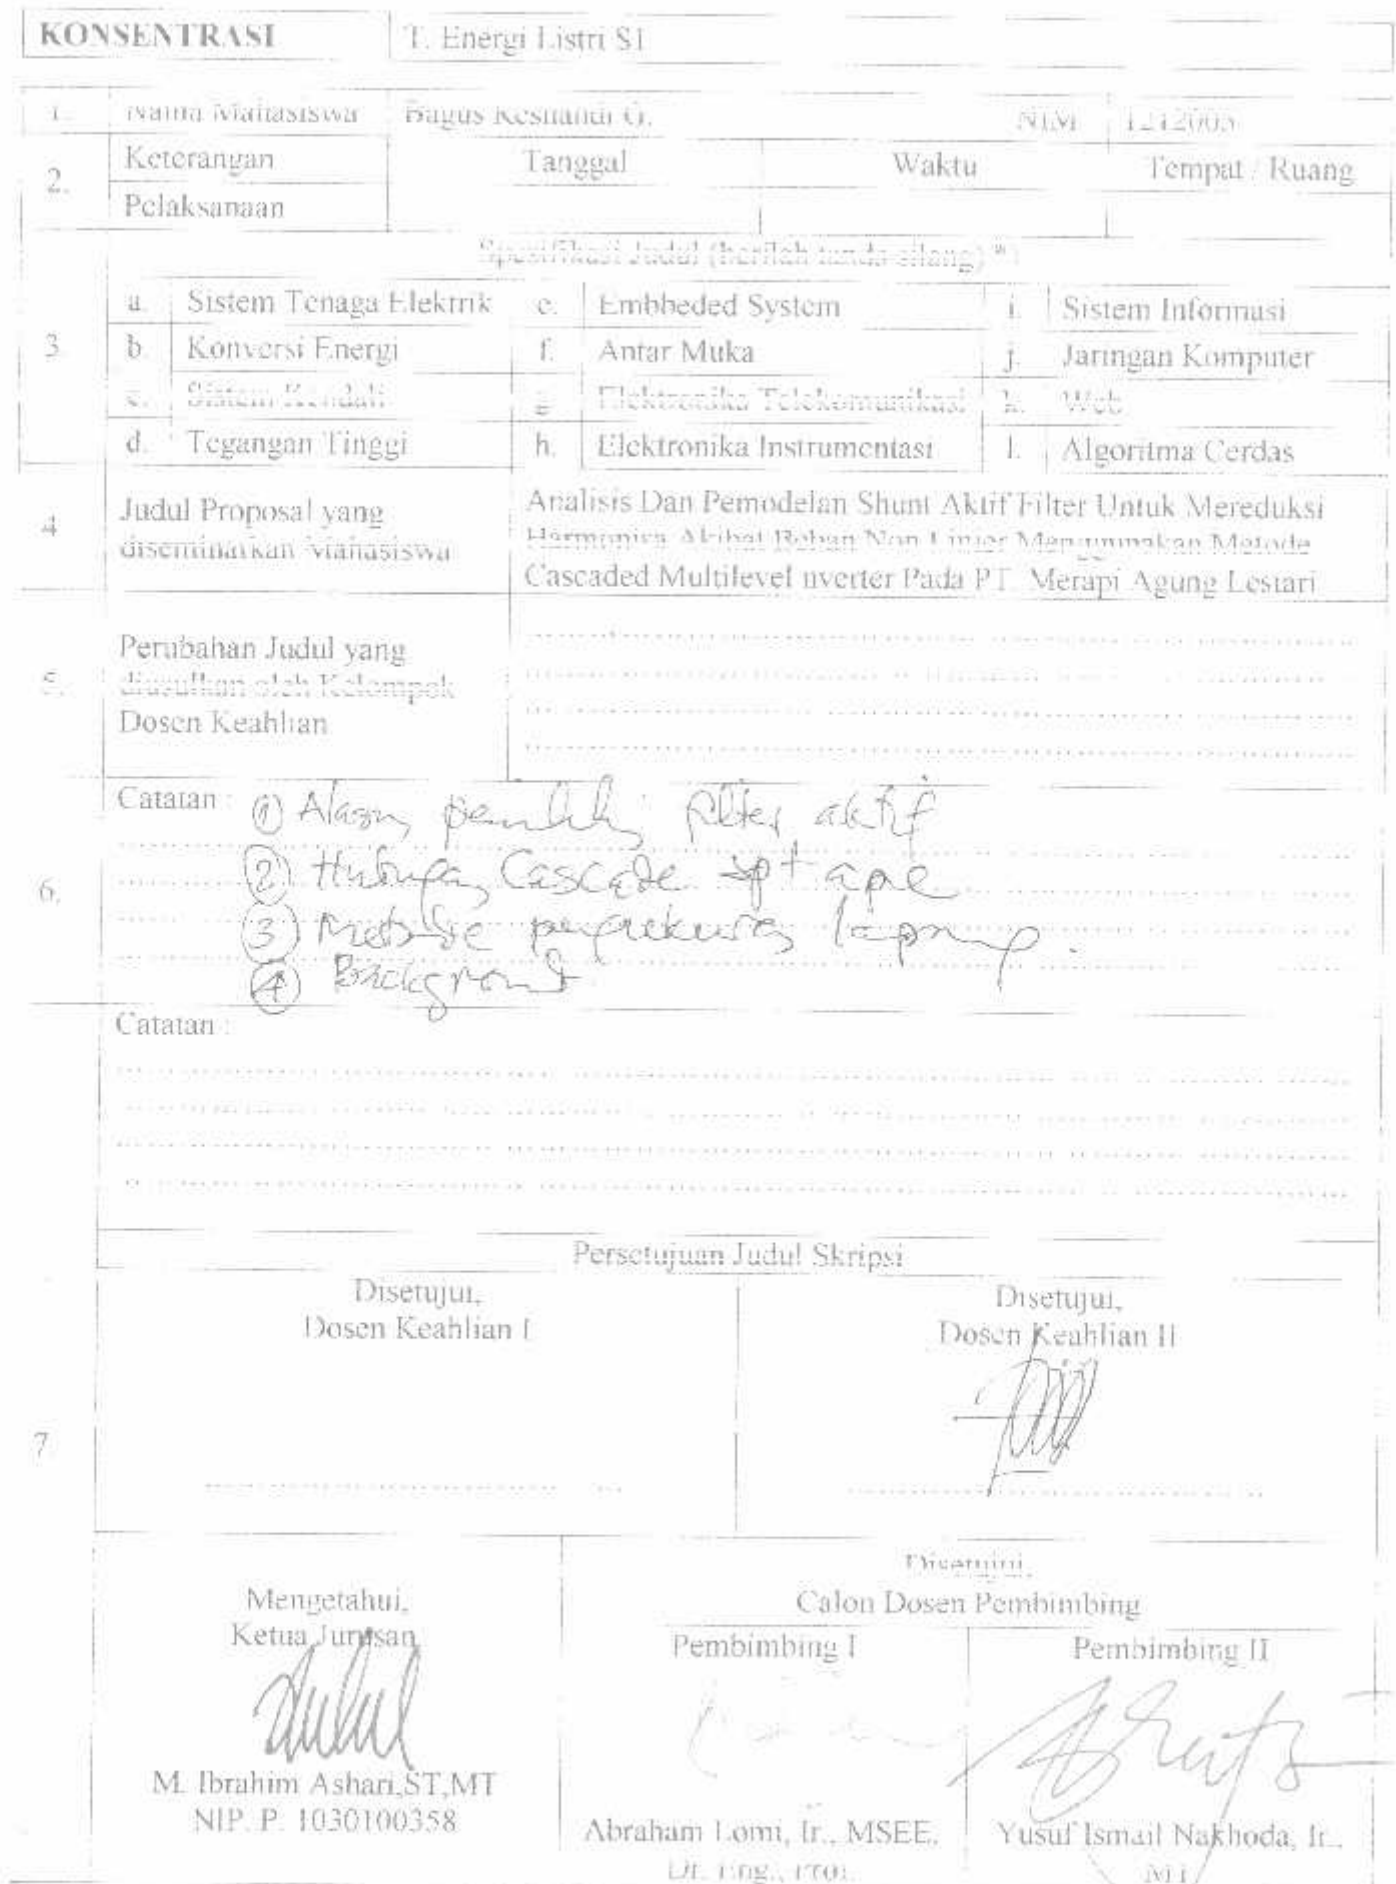 KONSENTRASI T. Energi Listri S1
1. Nama Mahasiswa Bagus G. NIM 1212003
2. Keterangan Pelaksanaan Tanggal Waktu Tempat / Ruang
Spesifikasi Judul (berilah tanda silang) *)
3. a. Sistem Tenaga Elektrik e. Embbeded System i. Sistem Informasi
b. Konversi Energi f. Antar Muka j. Jaringan Komputer
c. Sistem Kendali g. Elektronika Telekomunikasi k. Web
d. Tegangan Tinggi h. Elektronika Instrumentasi l. Algoritma Cerdas
4. Judul Proposal yang diseminarkan Mahasiswa
Analisis Dan Pemodelan Shunt Aktif Filter Untuk Mereduksi
Harmonisa Akibat Beban Non Linier Menggunakan Metode
Cascaded Multilevel nverter Pada PT. Merapi Agung Lestari
5. Perubahan Judul yang
diusulkan oleh Kelompok
Dosen Keahlian
6. Catatan : (1) Alasan filter aktif
(2) Cascade spt apa
(3) Metode
(4) Background
Catatan :
7. Persetujuan Judul Skripsi
Disetujui,
Dosen Keahlian I
Disetujui,
Dosen Keahlian II
Mengetahui,
Ketua Jurusan
M. Ibrahim Ashari,ST,MT
NIP. P. 1030100358
Disetujui,
Calon Dosen Pembimbing
Pembimbing I
Abraham Lomi, Ir., MSEE.
Dr. Eng., Prof.
Pembimbing II
Yusuf Ismail Nakhoda, Ir.,
MT